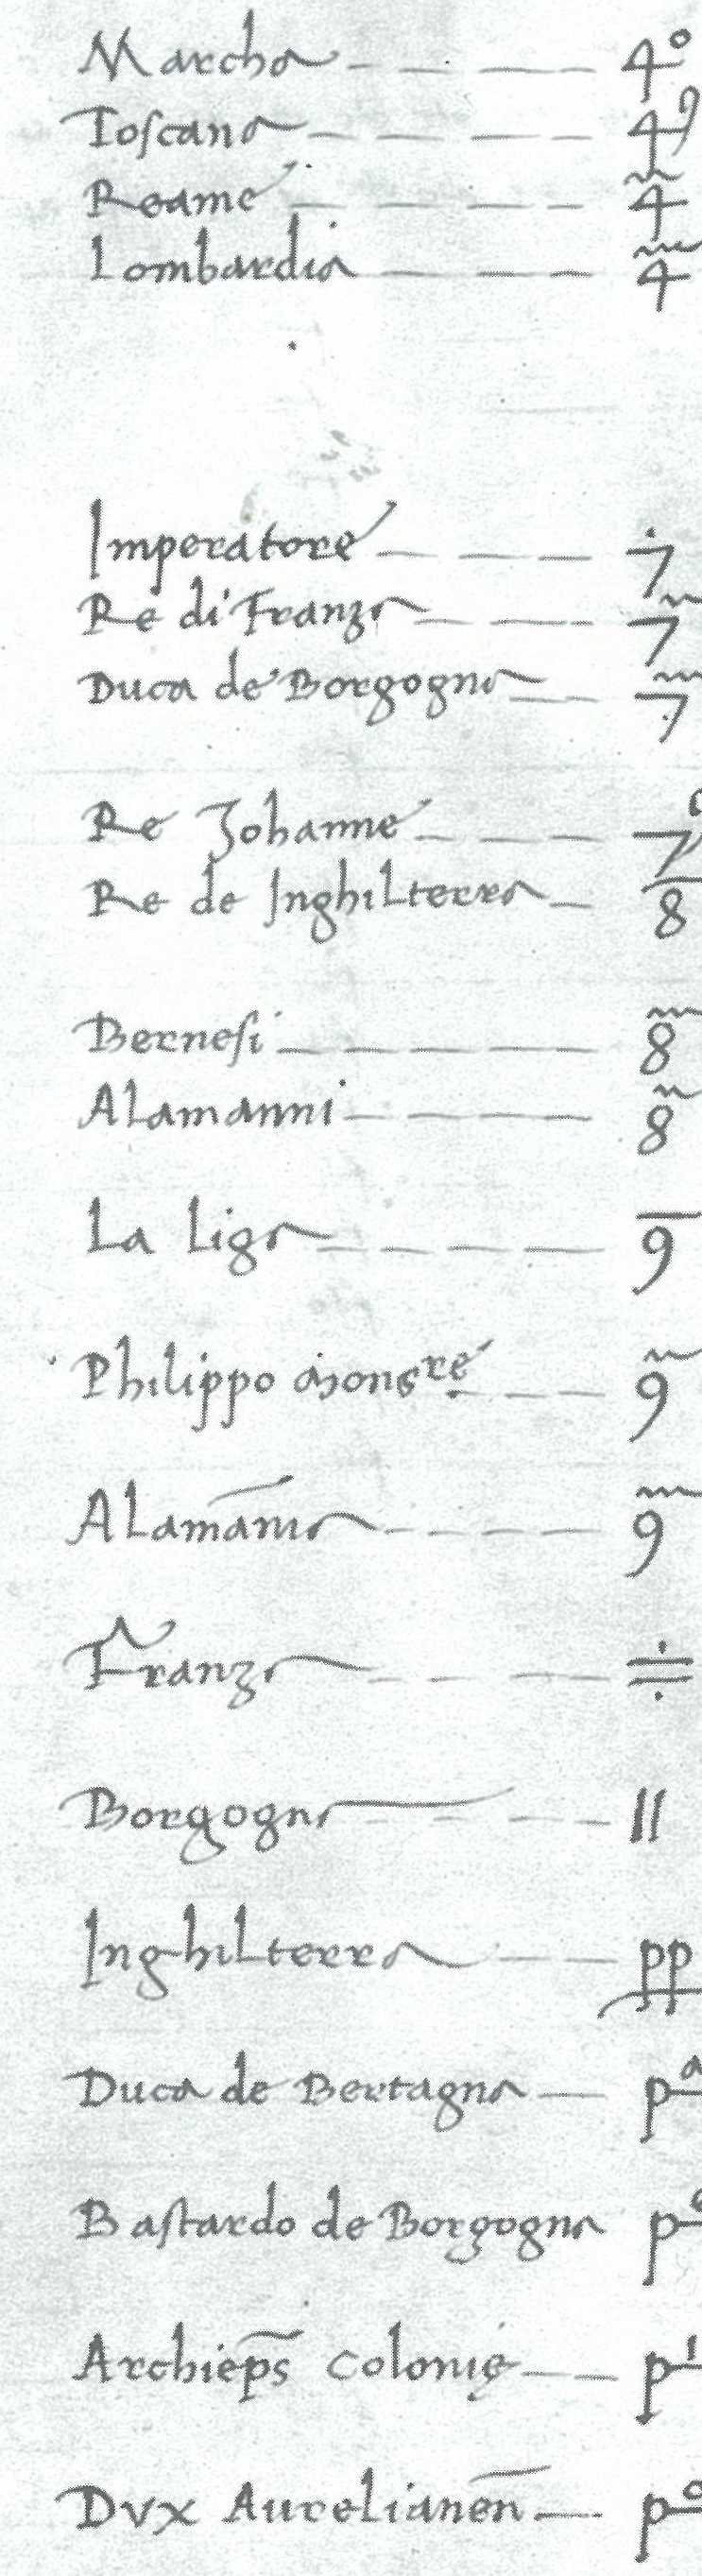 Marcha — — — — 4°
Toscana — — — — 4⁹
Reame — — — — 4̃
Lombardia — — — 4̃
Imperatore — — — 7̇
Re di Franza — — — 7̃
Duca de Borgogna — — 7̃
Re Johanne — — — 7
Re de Inghilterra — 8̅
Bernesi — — — — — 8̃
Alamanni — — — — 8̃
La Liga — — — — 9̅
Philippo Monsʳᵉ — — — 9̃
Alamāīa — — — — 9̃
Franza — — — ÷
Borgogna — — — 11
Inghilterra — — pp
Duca de Bertagna — pᵃ
Bastardo de Borgogna p
Archiep̃s Colonię — — pⁱ
Dvx Aurelianen̄ — — pᵒ